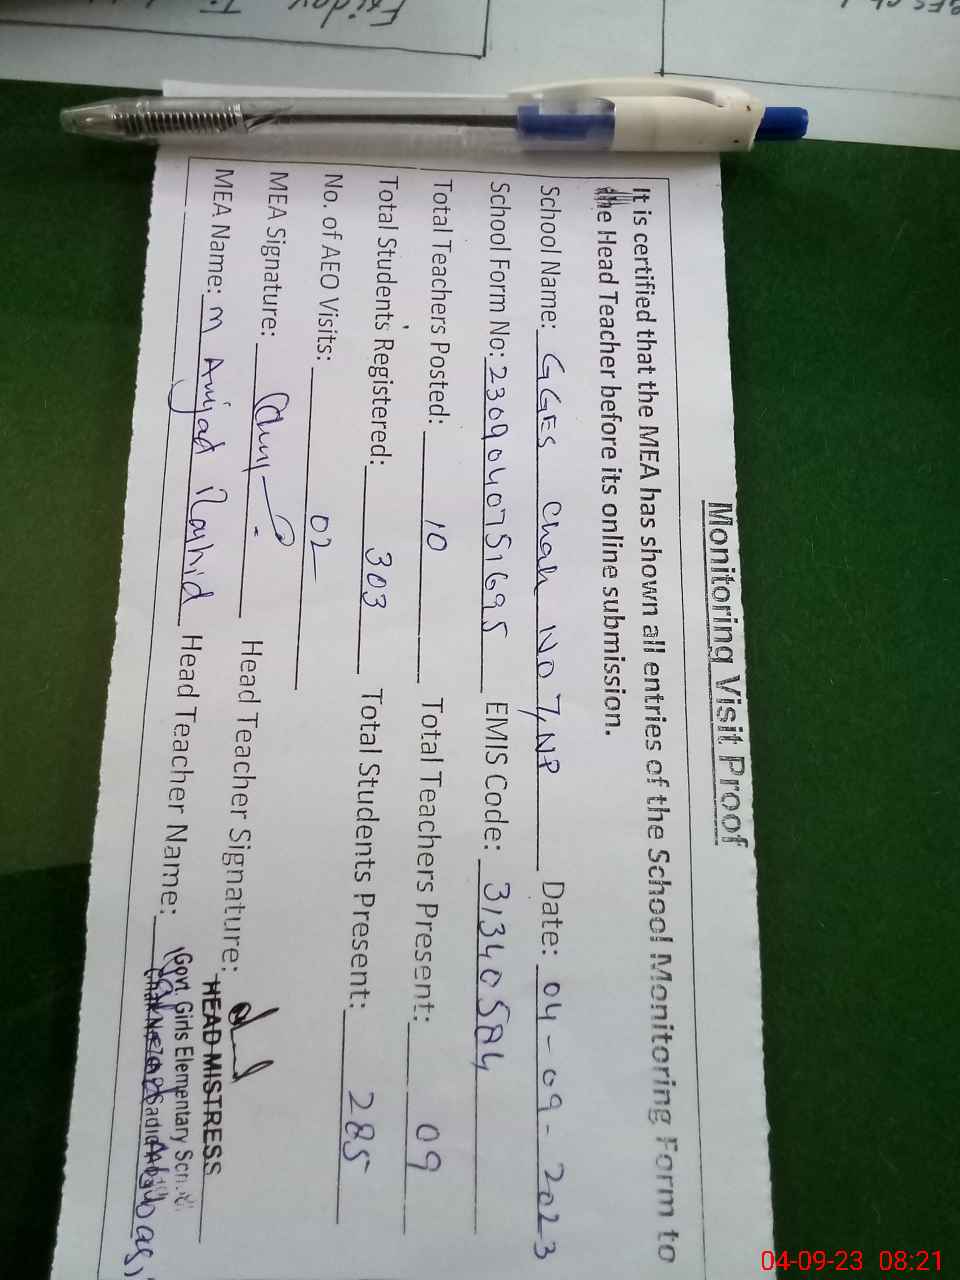 Friday
Monitoring Visit Proof
It is certified that the MEA has shown all entries of the School Monitoring Form to
the Head Teacher before its online submission.
School Name: GGES Chak NO 7,NP Date: 04-09-2023
School Form No: 23090407S169S EMIS Code: 31340584
Total Teachers Posted: 10 Total Teachers Present: 09
Total Students Registered: 303 Total Students Present: 285
No. of AEO Visits: 02
MEA Signature: Head Teacher Signature:
HEAD MISTRESS
MEA Name: M Amjad Rashid Head Teacher Name:
Govt. Girls Elementary School
04-09-23 08:21